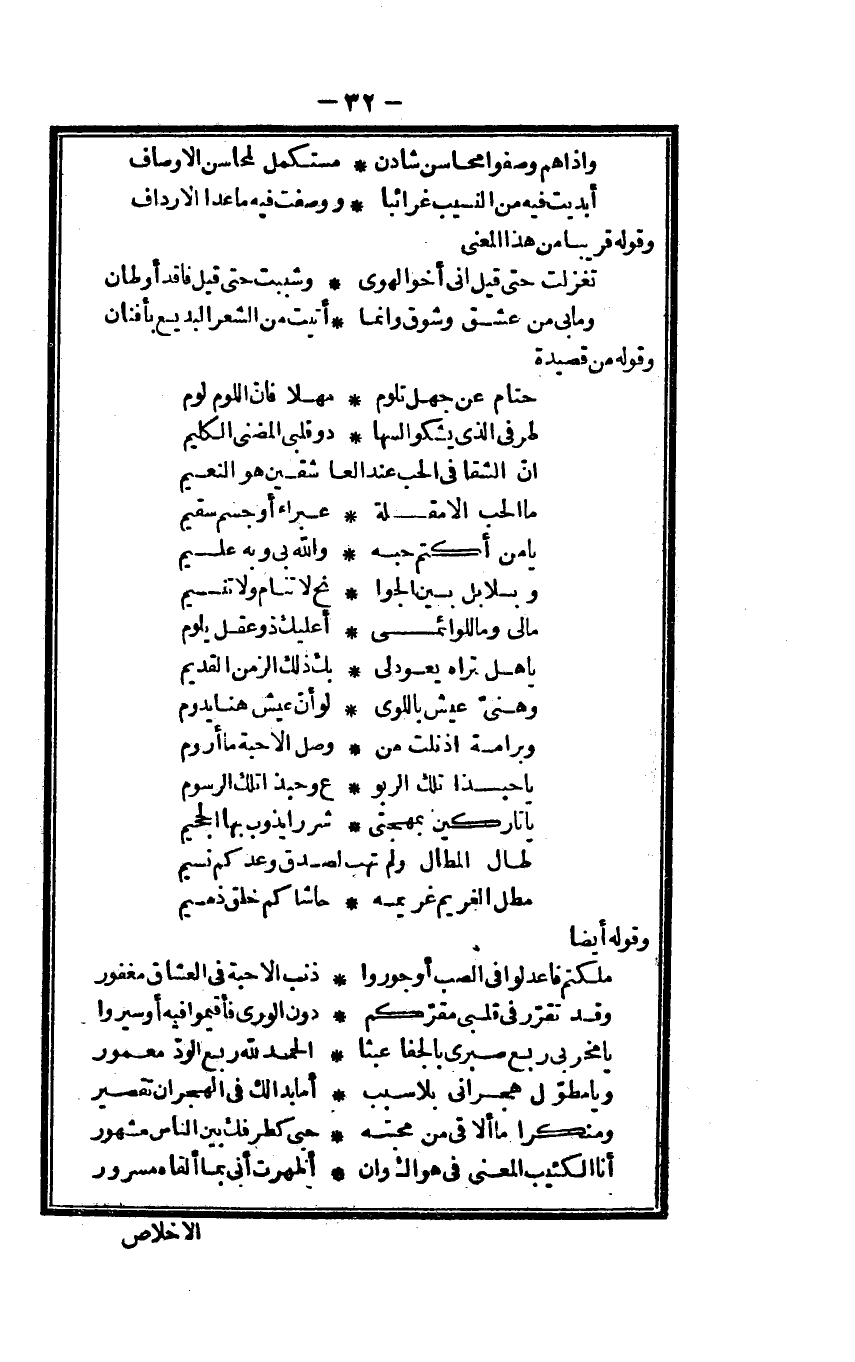 — ٣٢ —
واذا هم وصفوا محاسن شادن * مستكمل لمحاسن الاوصاف
أبديت فيه من النسيب غرائبا * ووصفت فيه ماعدا الارداف
وقوله قريبا من هذا المعنى
تغزلت حتى قيل انى أخو الهوى * وشببت حتى قيل فاقد أوطان
ومابى من عشق وشوق وانما * أتيت من الشعر البديع بأفنان
وقوله من قصيدة
حتام عن جهل تلوم * مهلا فان اللوم لوم
طرفى الذى يشكو السها * دوقلبى المضنى الكليم
ان الشقا فى الحب عند العا شقين هو النعيم
ما الحب الا مقلة * عبراء أو جسم سقيم
يامن أكتم حبه * والله بى وبه عليم
وبلابل بين الجوا * نح لا تنام ولا تنيم
مالى وما للوائمى * أعليك ذو عقل يلوم
ياهل تراه يعودلى * بك ذلك الزمن القديم
وهنىّ عيش باللوى * لو أنّ عيش هنا يدوم
وبرامة اذنلت من * وصل الاحبة ما أروم
ياحبذا تلك الربو * ع وحبذا تلك الرسوم
ياتاركين بمهجتى * شررا يذوب بها الجحيم
طال المطال ولم تهب لصدق وعدكم نسيم
مطل الغريم غريمه * حاشاكم خلق ذميم
وقوله أيضا
ملكتم فاعدلوا فى الصب أوجوروا * ذنب الاحبة فى العشاق مغفور
وقد تقرّر فى قلبى مقرّكم * دون الورى فأقيموا فيه أوسيروا
يامخربى ربع صبرى بالجفا عبثا * الحمد لله ربع الودّ معمور
ويامطوّل هجرانى بلا سبب * أما بدا لك فى الهجران تقصير
ومنكرا ما ألاقى من محبته * حبى كطرفك بين الناس مشهور
أنا الكئيب المعنى فى هواك وان * أظهرت أنى بما ألقاه مسرور
الاخلاص